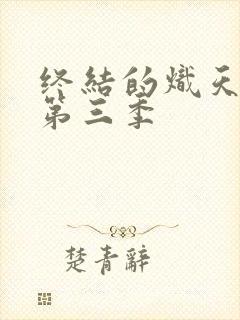 终結的熾天
第三季
楚青辭